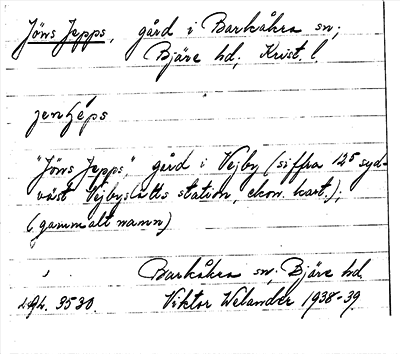 Jöns Jepps, gård i Barkåkra sn;
Bjäre hd; Krist. l.
jenʃéps
"Jöns Jepps," gård i Vejby (siffra 125 syd-
väst Vejbysletts station, ekon. kart.);
(gammalt namn)
Barkåkra sn; Bjäre hd.
3530. Viktor Welander 1938-39.